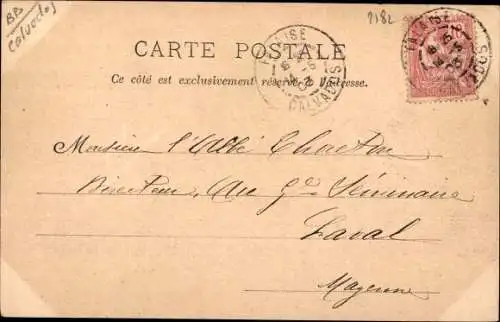 BPs
Calvados
2182
CARTE POSTALE
Ce côté est exclusivement réservé à l'adresse.
FALAISE
CALVADOS
FALAISE
Monsieur l'Abbé
Directeur, au Gd Séminaire
Laval
Mayenne